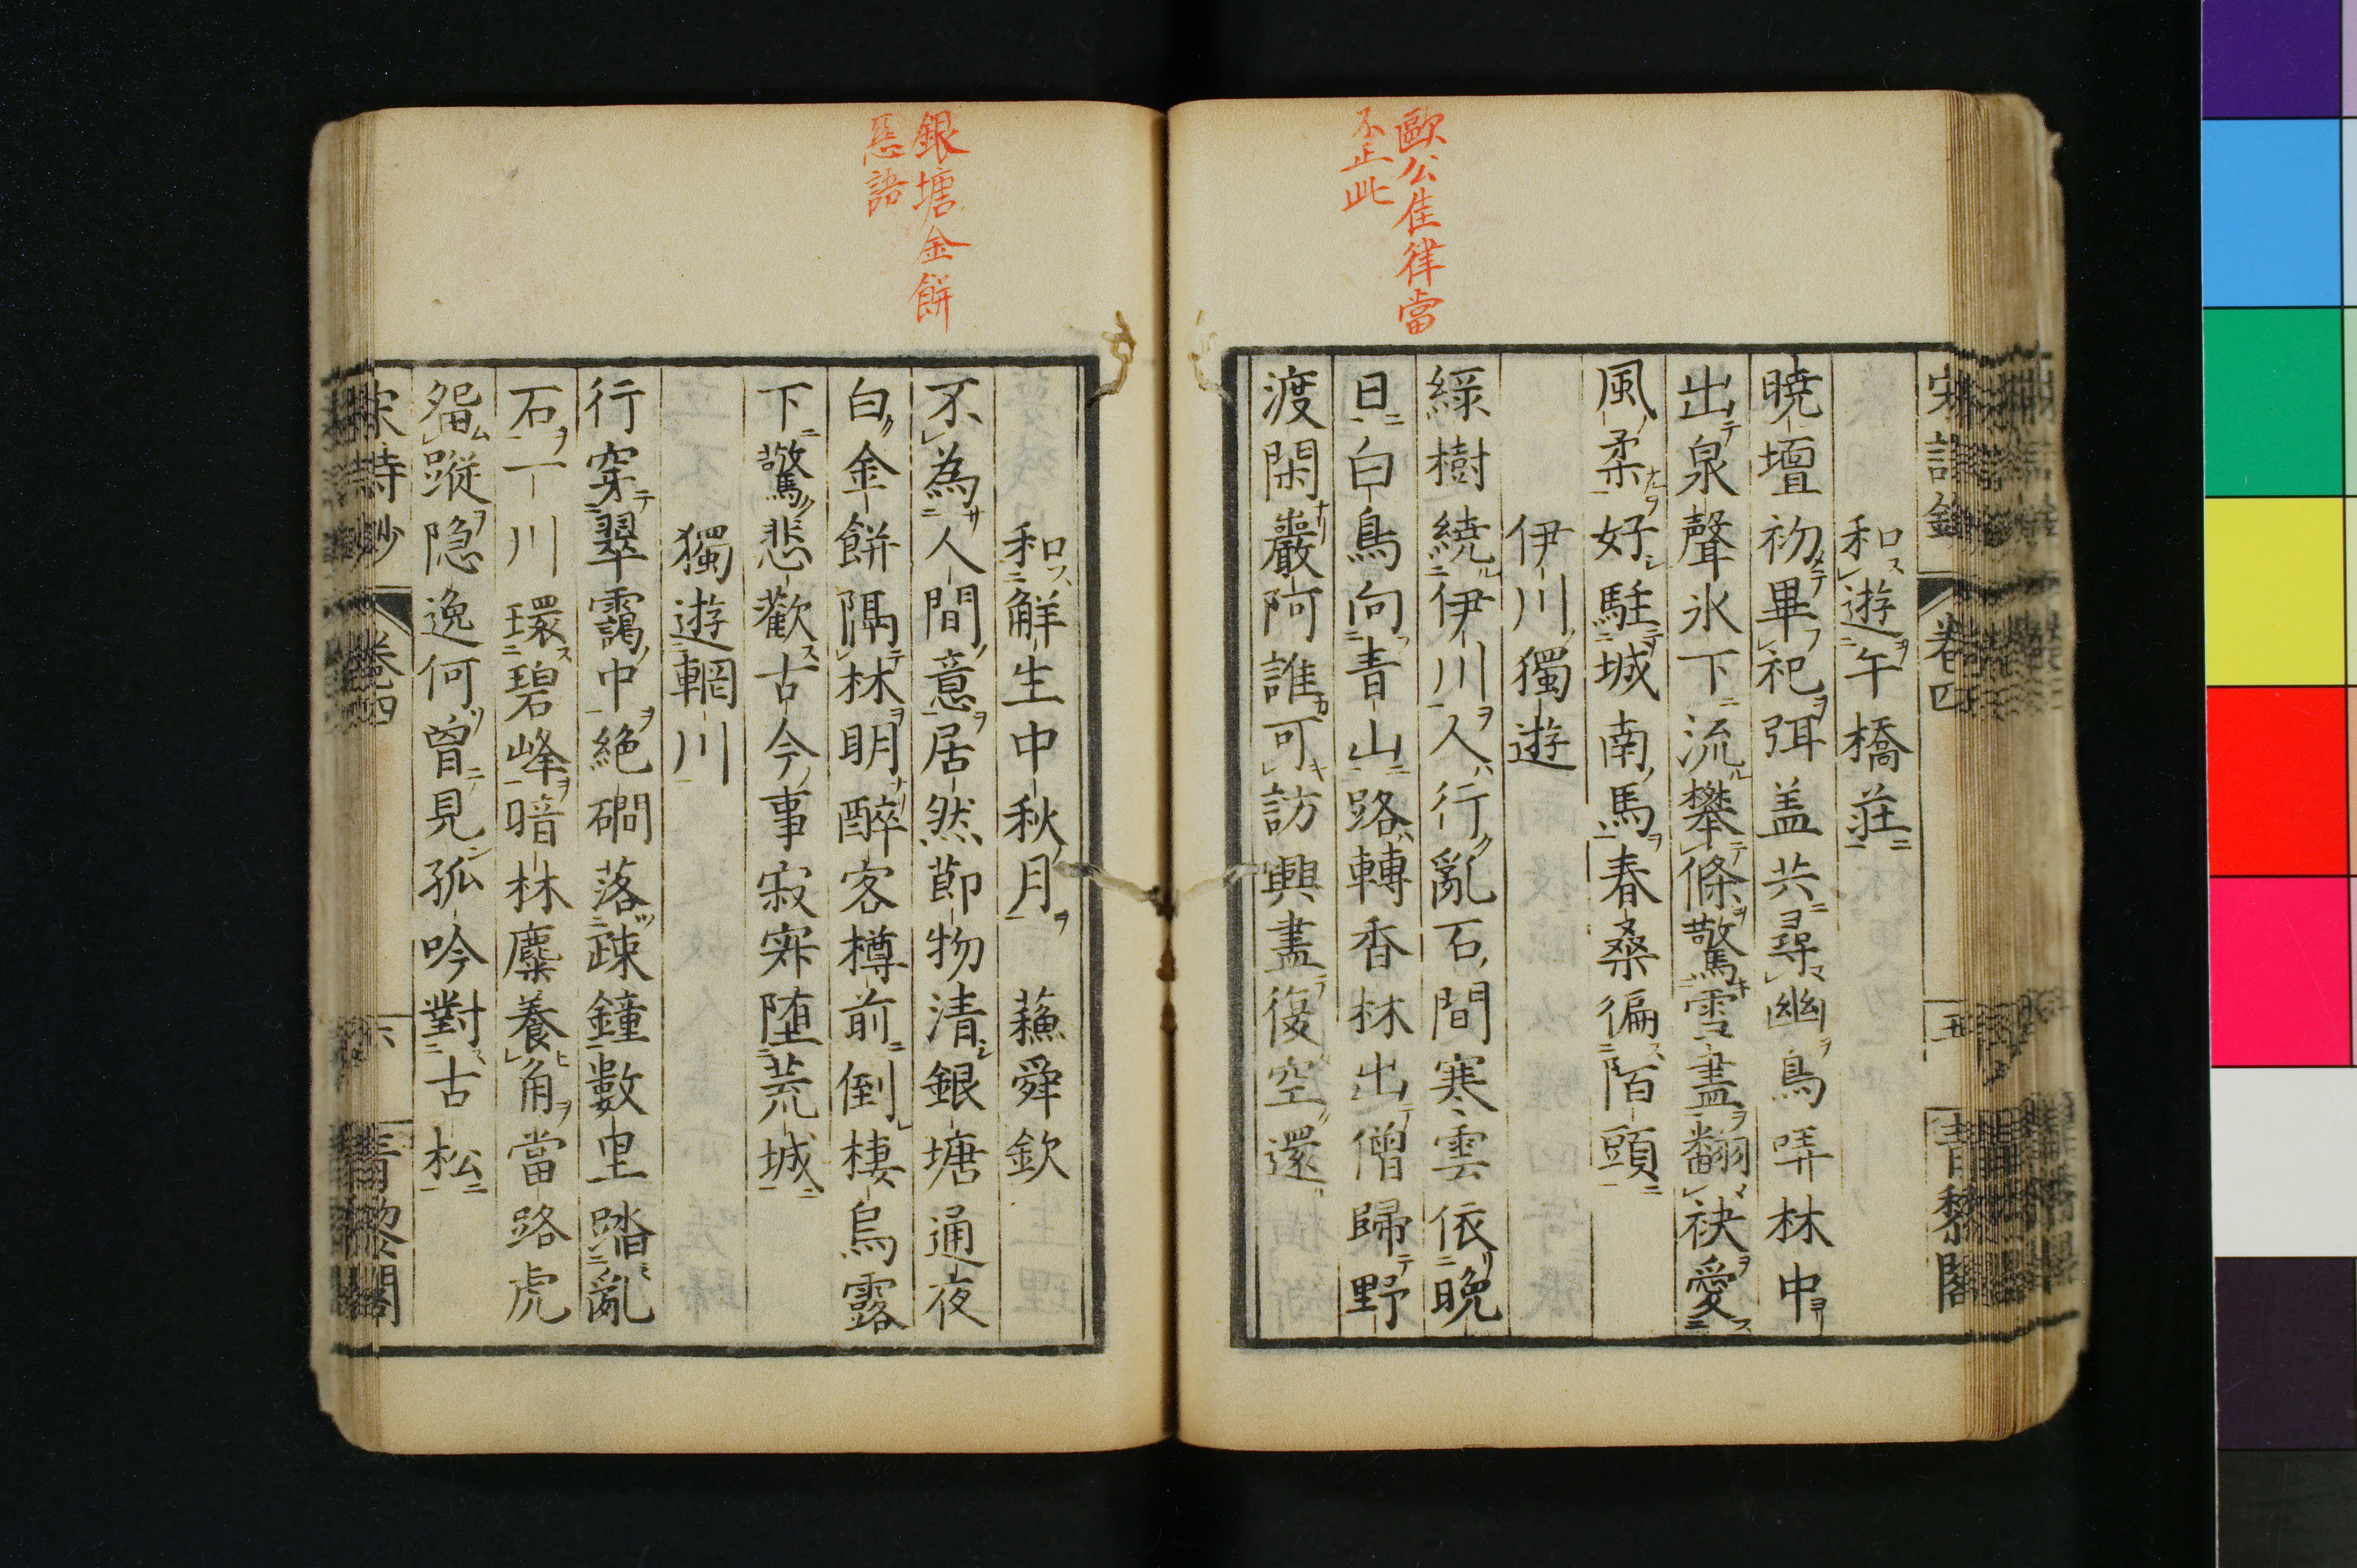 歐公佳律當
不止此
和遊午橋莊
曉壇初畢祀弭盖共尋幽鳥哢林中
出泉聲氷下流攀條驚雪盡翻袂愛
風柔好駐城南馬春桑徧陌頭
伊川獨遊
緑樹繞伊川人行亂石間寒雲依晩
日白鳥向青山路轉香林出僧歸野
渡閑巖阿誰可訪興盡復空還
銀塘金餅
惡語
和觧生中秋月 蘓舜欽
不為人間意居然莭物清銀塘通夜
白金餅隔林明醉客樽前倒棲烏露
下驚悲歡古今事寂寞堕荒城
獨遊輞川
行穿翠靄中絶磵落疎鐘數里踏亂
石一川環碧峰暗林麋養角當路虎
畱蹤隐逸何曽見孤吟對古松
宋詩鈔 卷四 六 青黎閣